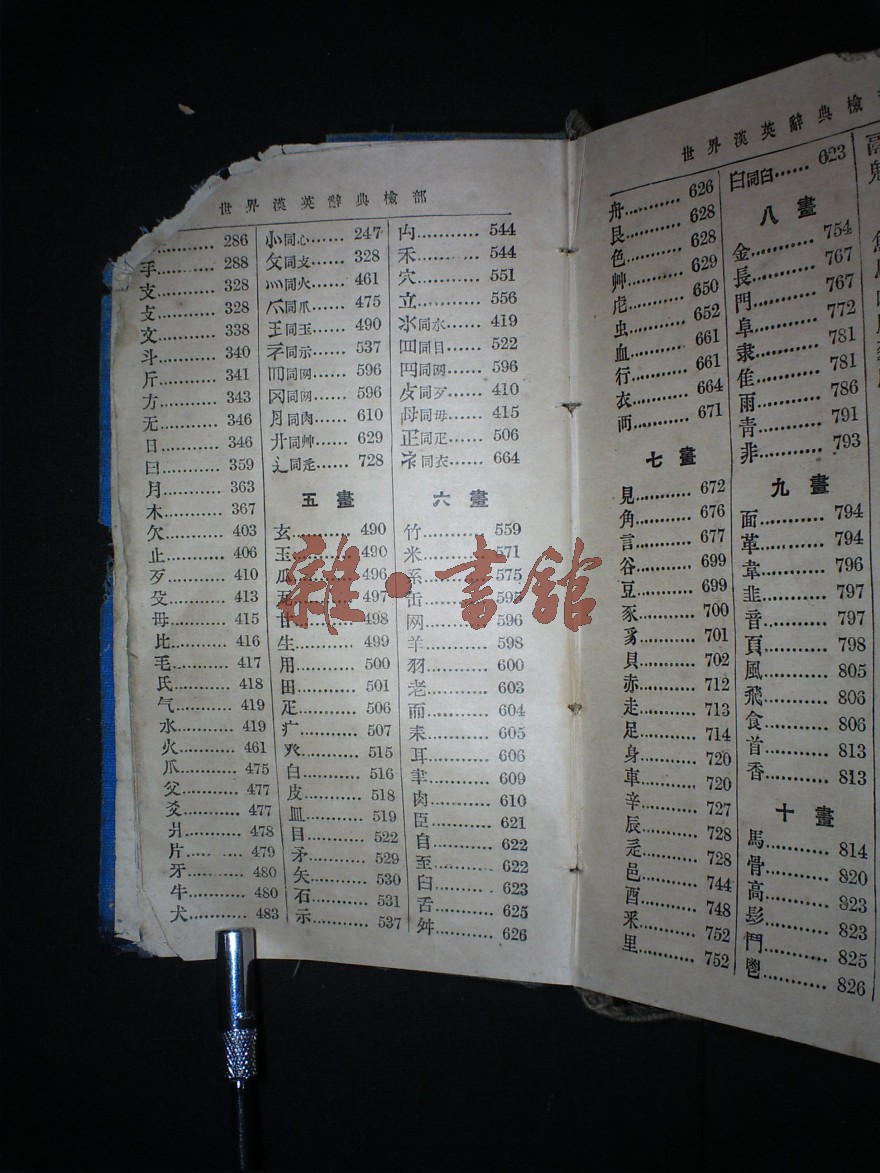 世界漢英辭典檢部
286
手 288
支 328
攴 328
文 338
斗 340
斤 341
方 343
无 346
日 346
曰 359
月 363
木 367
欠 403
止 406
歹 410
殳 413
毋 415
比 416
毛 417
氏 418
气 419
水 419
火 461
爪 475
父 477
爻 477
爿 478
片 479
牙 480
牛 480
犬 483
⺗同心 247
攵同攴 328
灬同火 461
爫同爪 475
王同玉 490
礻同示 537
罒同网 596
冈同网 596
月同肉 610
艹同艸 629
辶同辵 728
五畫
玄 490
玉 490
瓜 496
瓦 497
甘 498
生 499
用 500
田 501
疋 506
疒 507
癶 515
白 516
皮 518
皿 519
目 522
矛 529
矢 530
石 531
示 537
禸 544
禾 544
穴 551
立 556
氺同水 419
罒同目 522
罒同网 596
歺同歹 410
母同毋 415
正同疋 506
衤同衣 664
六畫
竹 559
米 571
糸 575
缶 595
网 596
羊 598
羽 600
老 603
而 604
耒 605
耳 606
聿 609
肉 610
臣 621
自 622
至 622
臼 623
舌 625
舛 626
世界漢英辭典檢
舟 626
艮 628
色 628
艸 629
虍 650
虫 652
血 661
行 661
衣 664
襾 671
七畫
見 672
角 676
言 677
谷 699
豆 699
豕 700
豸 701
貝 702
赤 712
走 713
足 714
身 720
車 720
辛 727
辰 728
辵 728
邑 744
酉 748
釆 752
里 752
𦥑同臼 623
八畫
金 754
長 767
門 767
阜 772
隶 781
隹 781
雨 786
青 791
非 793
九畫
面 794
革 794
韋 796
韭 797
音 797
頁 798
風 805
飛 806
食 806
首 813
香 813
十畫
馬 814
骨 820
高 823
髟 823
鬥 825
鬯 826
雜·書館